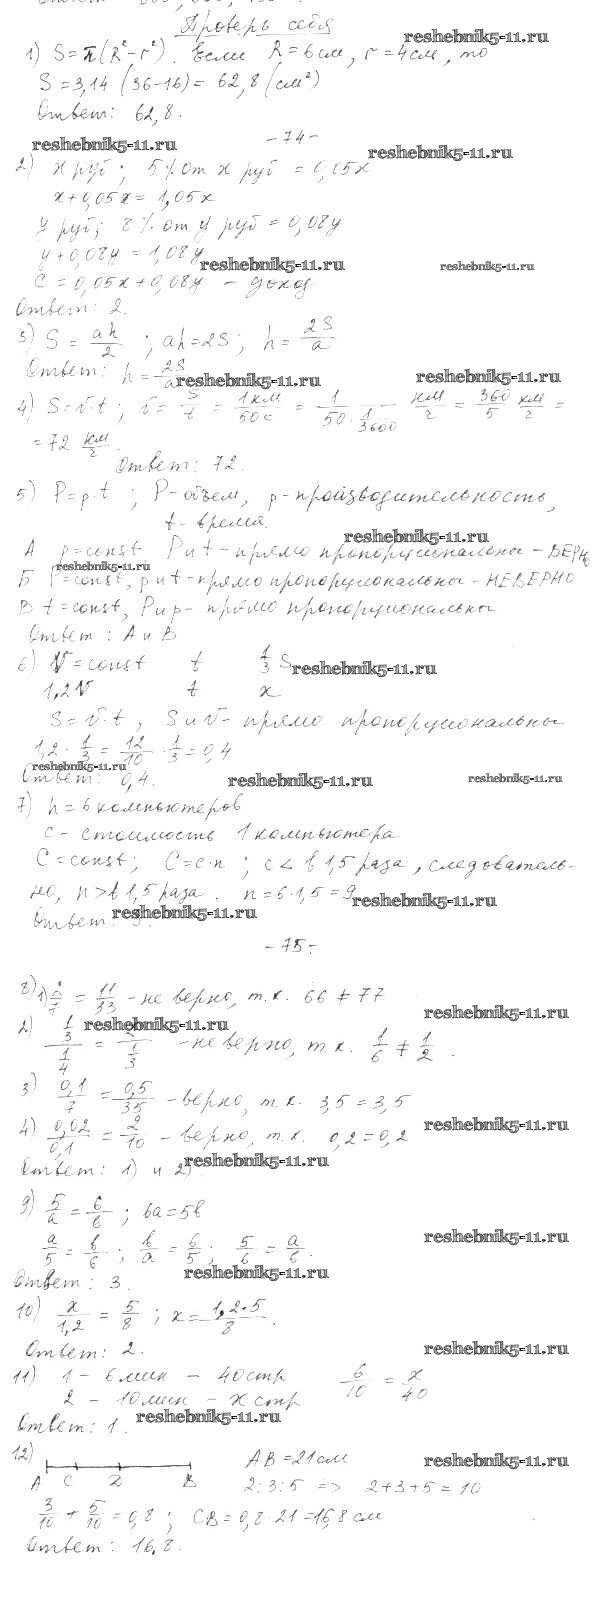 Проверь себя
reshebnik5-11.ru
1) S = π(R² - r²). Если R = 6 см, r = 4 см, то
S = 3,14 (36-16) = 62,8 (см²)
Ответ: 62,8.
- 74 -
reshebnik5-11.ru reshebnik5-11.ru
2) x руб; 5% от x руб = 0,05x
x + 0,05x = 1,05x
y руб; 8% от y руб = 0,08y
y + 0,08y = 1,08y
reshebnik5-11.ru reshebnik5-11.ru
C = 0,05x + 0,08y - доход
Ответ: 2.
3) S = ah/2; ah = 2S; h = 2S/a
Ответ: h = 2S/a
reshebnik5-11.ru reshebnik5-11.ru
4) S = v·t; v = S/t = 1 км/50 с = 1/(50 · 1/3600) км/г = 360/5 км/г =
= 72 км/г.
Ответ: 72.
5) P = p·t; P - объем, p - производительность,
t - время.
reshebnik5-11.ru
А p = const P и t - прямо пропорциональны - ВЕРНО
reshebnik5-11.ru
Б P = const, p и t - прямо пропорциональны - НЕВЕРНО
В t = const, P и p - прямо пропорциональны
Ответ: А и В
6) V = const t 1/3 S
reshebnik5-11.ru
1,2 V t x
S = v·t, S и v - прямо пропорциональны
1,2 · 1/3 = 12/10 · 1/3 = 0,4
reshebnik5-11.ru
Ответ: 0,4.
reshebnik5-11.ru reshebnik5-11.ru
7) n = 6 компьютеров
c - стоимость 1 компьютера
C = const; C = c·n; c < в 1,5 раза, следователь-
но, n > в 1,5 раза. n = 6·1,5 = 9
reshebnik5-11.ru
Ответ:
reshebnik5-11.ru
- 75 -
8) 1) = 11/33 - не верно, т.к. 66 ≠ 77
reshebnik5-11.ru
2) (1/3)/(1/4) = /(1/3) - не верно, т.к. 1/6 ≠ 1/2.
reshebnik5-11.ru
3) 0,1/7 = 0,5/35 - верно, т.к. 3,5 = 3,5
4) 0,02/0,1 = 2/10 - верно, т.к. 0,2 = 0,2
reshebnik5-11.ru
Ответ: 1) и 2)
reshebnik5-11.ru
9) 5/a = 6/в; 6a = 5в
a/5 = в/6; в/a = 6/5; 5/6 = a/в.
reshebnik5-11.ru
Ответ: 3.
reshebnik5-11.ru
10) x/1,2 = 5/8; x = 1,2·5/8.
Ответ: 2.
reshebnik5-11.ru
11) 1 - 6 мин - 40 стр 6/10 = x/40
2 - 10 мин - x стр
Ответ: 1.
reshebnik5-11.ru
12) AB = 21 см
reshebnik5-11.ru
A C D B 2:3:5 => 2+3+5 = 10
3/10 + 5/10 = 0,8; CB = 0,8·21 = 16,8 см
Ответ: 16,8.